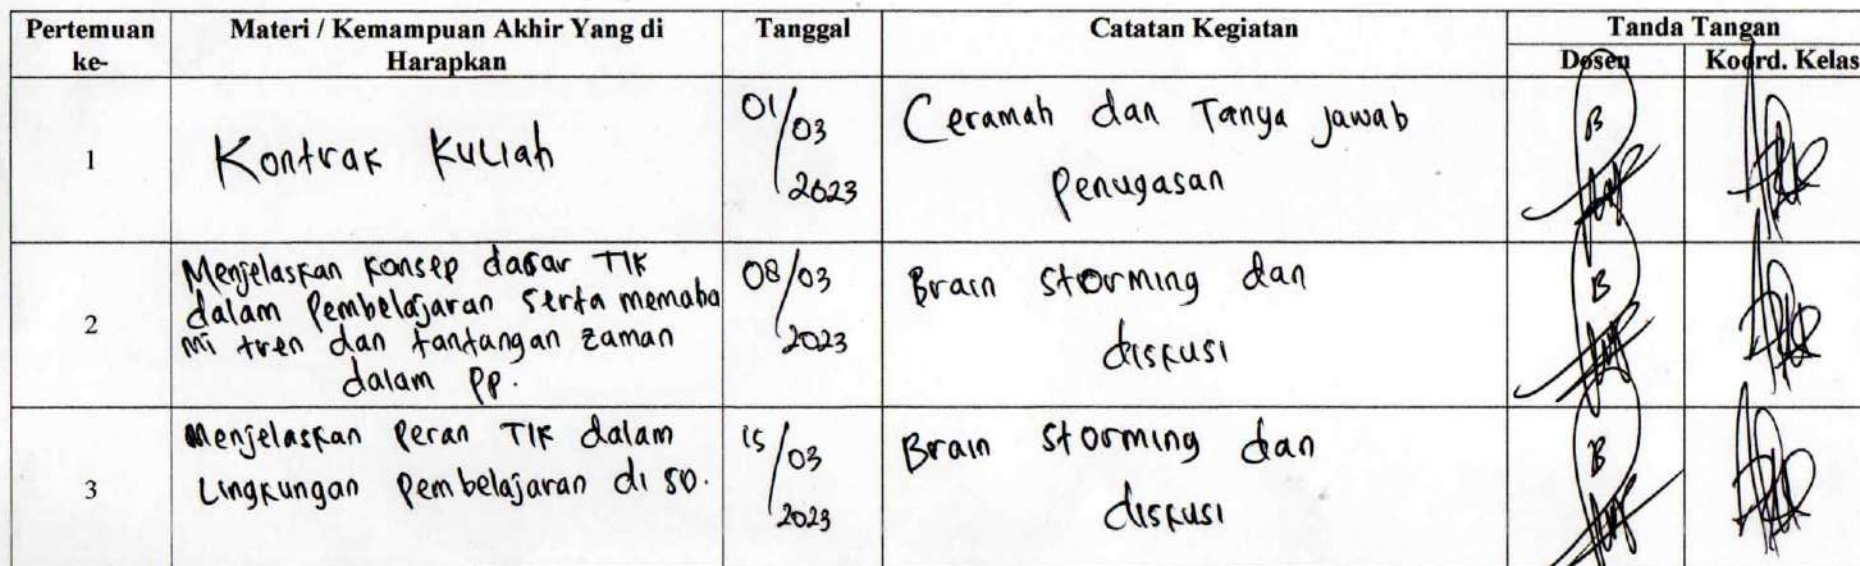 Pertemuan ke-
Materi / Kemampuan Akhir Yang di Harapkan
Tanggal
Catatan Kegiatan
Tanda Tangan
Dosen
Koord. Kelas
1
Kontrak Kuliah
01/03
2023
Ceramah dan Tanya jawab
Penugasan
2
Menjelaskan konsep dasar TIK
dalam Pembelajaran serta memaha
mi tren dan tantangan zaman
dalam PP.
08/03
2023
Brain storming dan
diskusi
3
Menjelaskan Peran TIK dalam
Lingkungan Pembelajaran di SD.
15/03
2023
Brain storming dan
diskusi